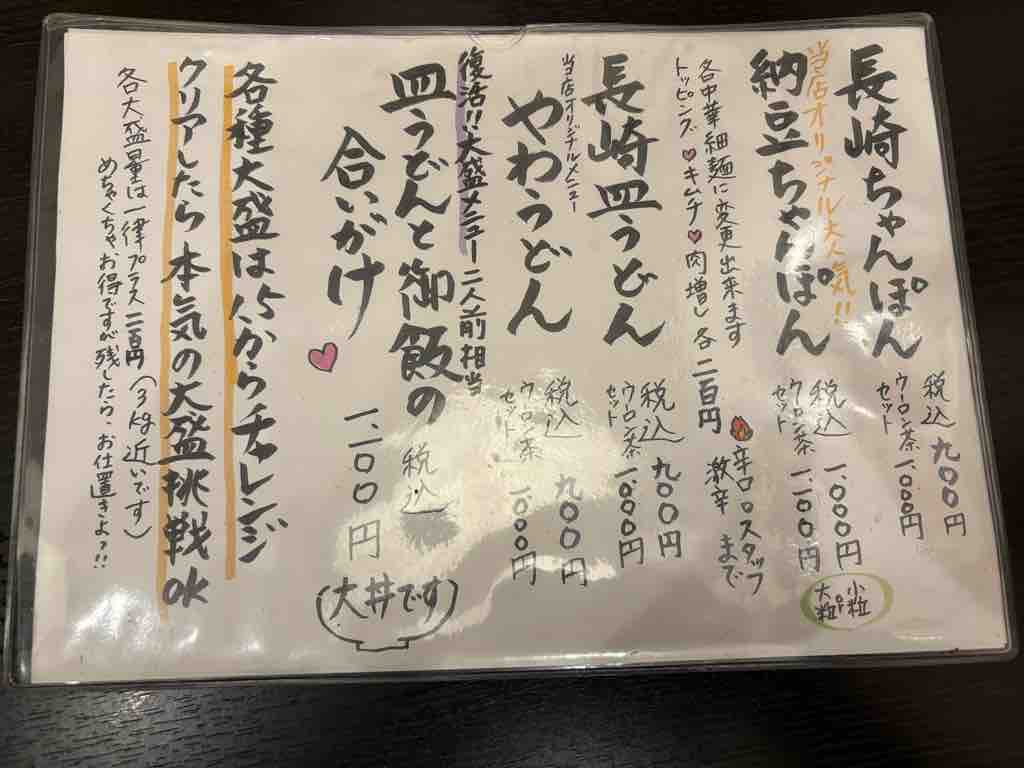 長崎ちゃんぽん
税込 九〇〇円
ウーロン茶セット 一、一〇〇円
当店オリジナル大人気!!
納豆ちゃんぽん
税込 一、〇〇〇円
ウーロン茶セット 一、一〇〇円
小粒
or
大粒
各中華細麺に変更出来ます
トッピング♥キムチ♥肉増し各二百円
辛口ロスタッフ
激辛まで
長崎皿うどん
税込 九〇〇円
ウーロン茶セット 一、〇〇〇円
当店オリジナルメニュー
やわうどん
税込 九〇〇円
ウーロン茶セット 一、〇〇〇円
復活!!大盛メニュー二人前相当
皿うどんと御飯の
合いがけ
税込
一、一〇〇円
(大丼です)
各種大盛は1.5からチャレンジ
クリアしたら本気の大盛挑戦ok
各大盛量は一律プラス二百円(3kg近いです)
めちゃくちゃお得ですが残したら、お仕置きよ?!